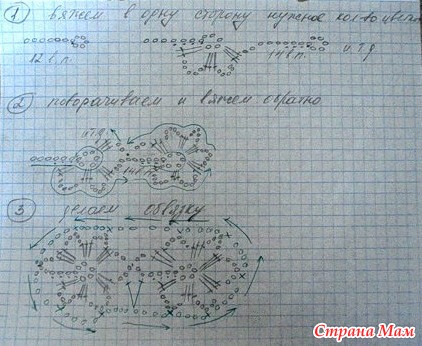 1 вяжем в одну сторону нужное кол-во цветов
12 в.п. 14 в.п. и т.д
2 поворачиваем и вяжем обратно
и т.д.
14 в.п.
3 делаем обвязку
Страна Мам